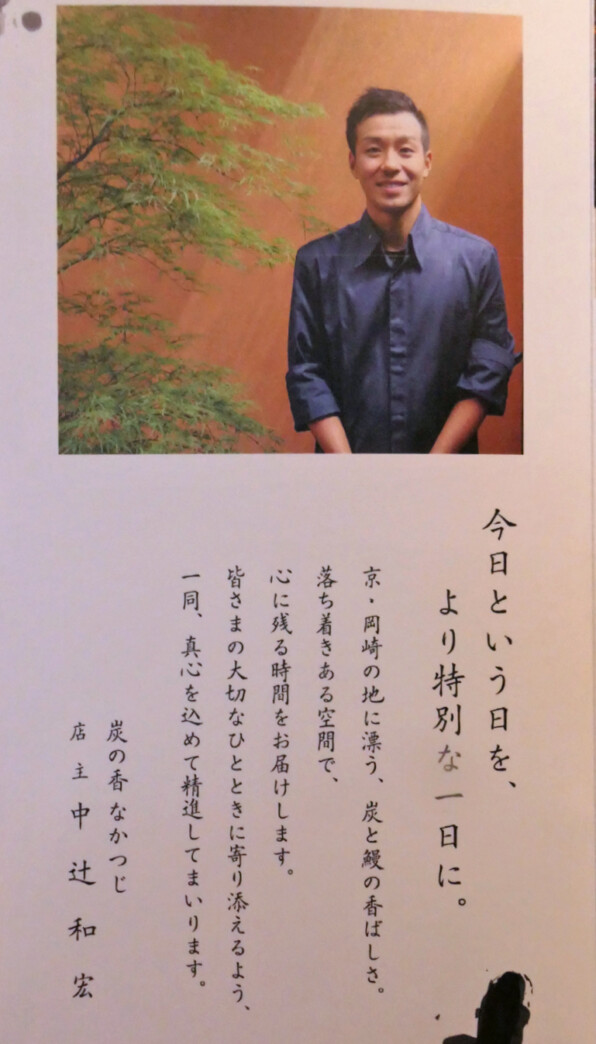 今日という日を、
より特別な一日に。
京・岡崎の地に漂う、炭と鰻の香ばしさ。
落ち着きある空間で、
心に残る時間をお届けします。
皆さまの大切なひとときに寄り添えるよう、
一同、真心を込めて精進してまいります。
炭の香 なかつじ
店主 中辻和宏